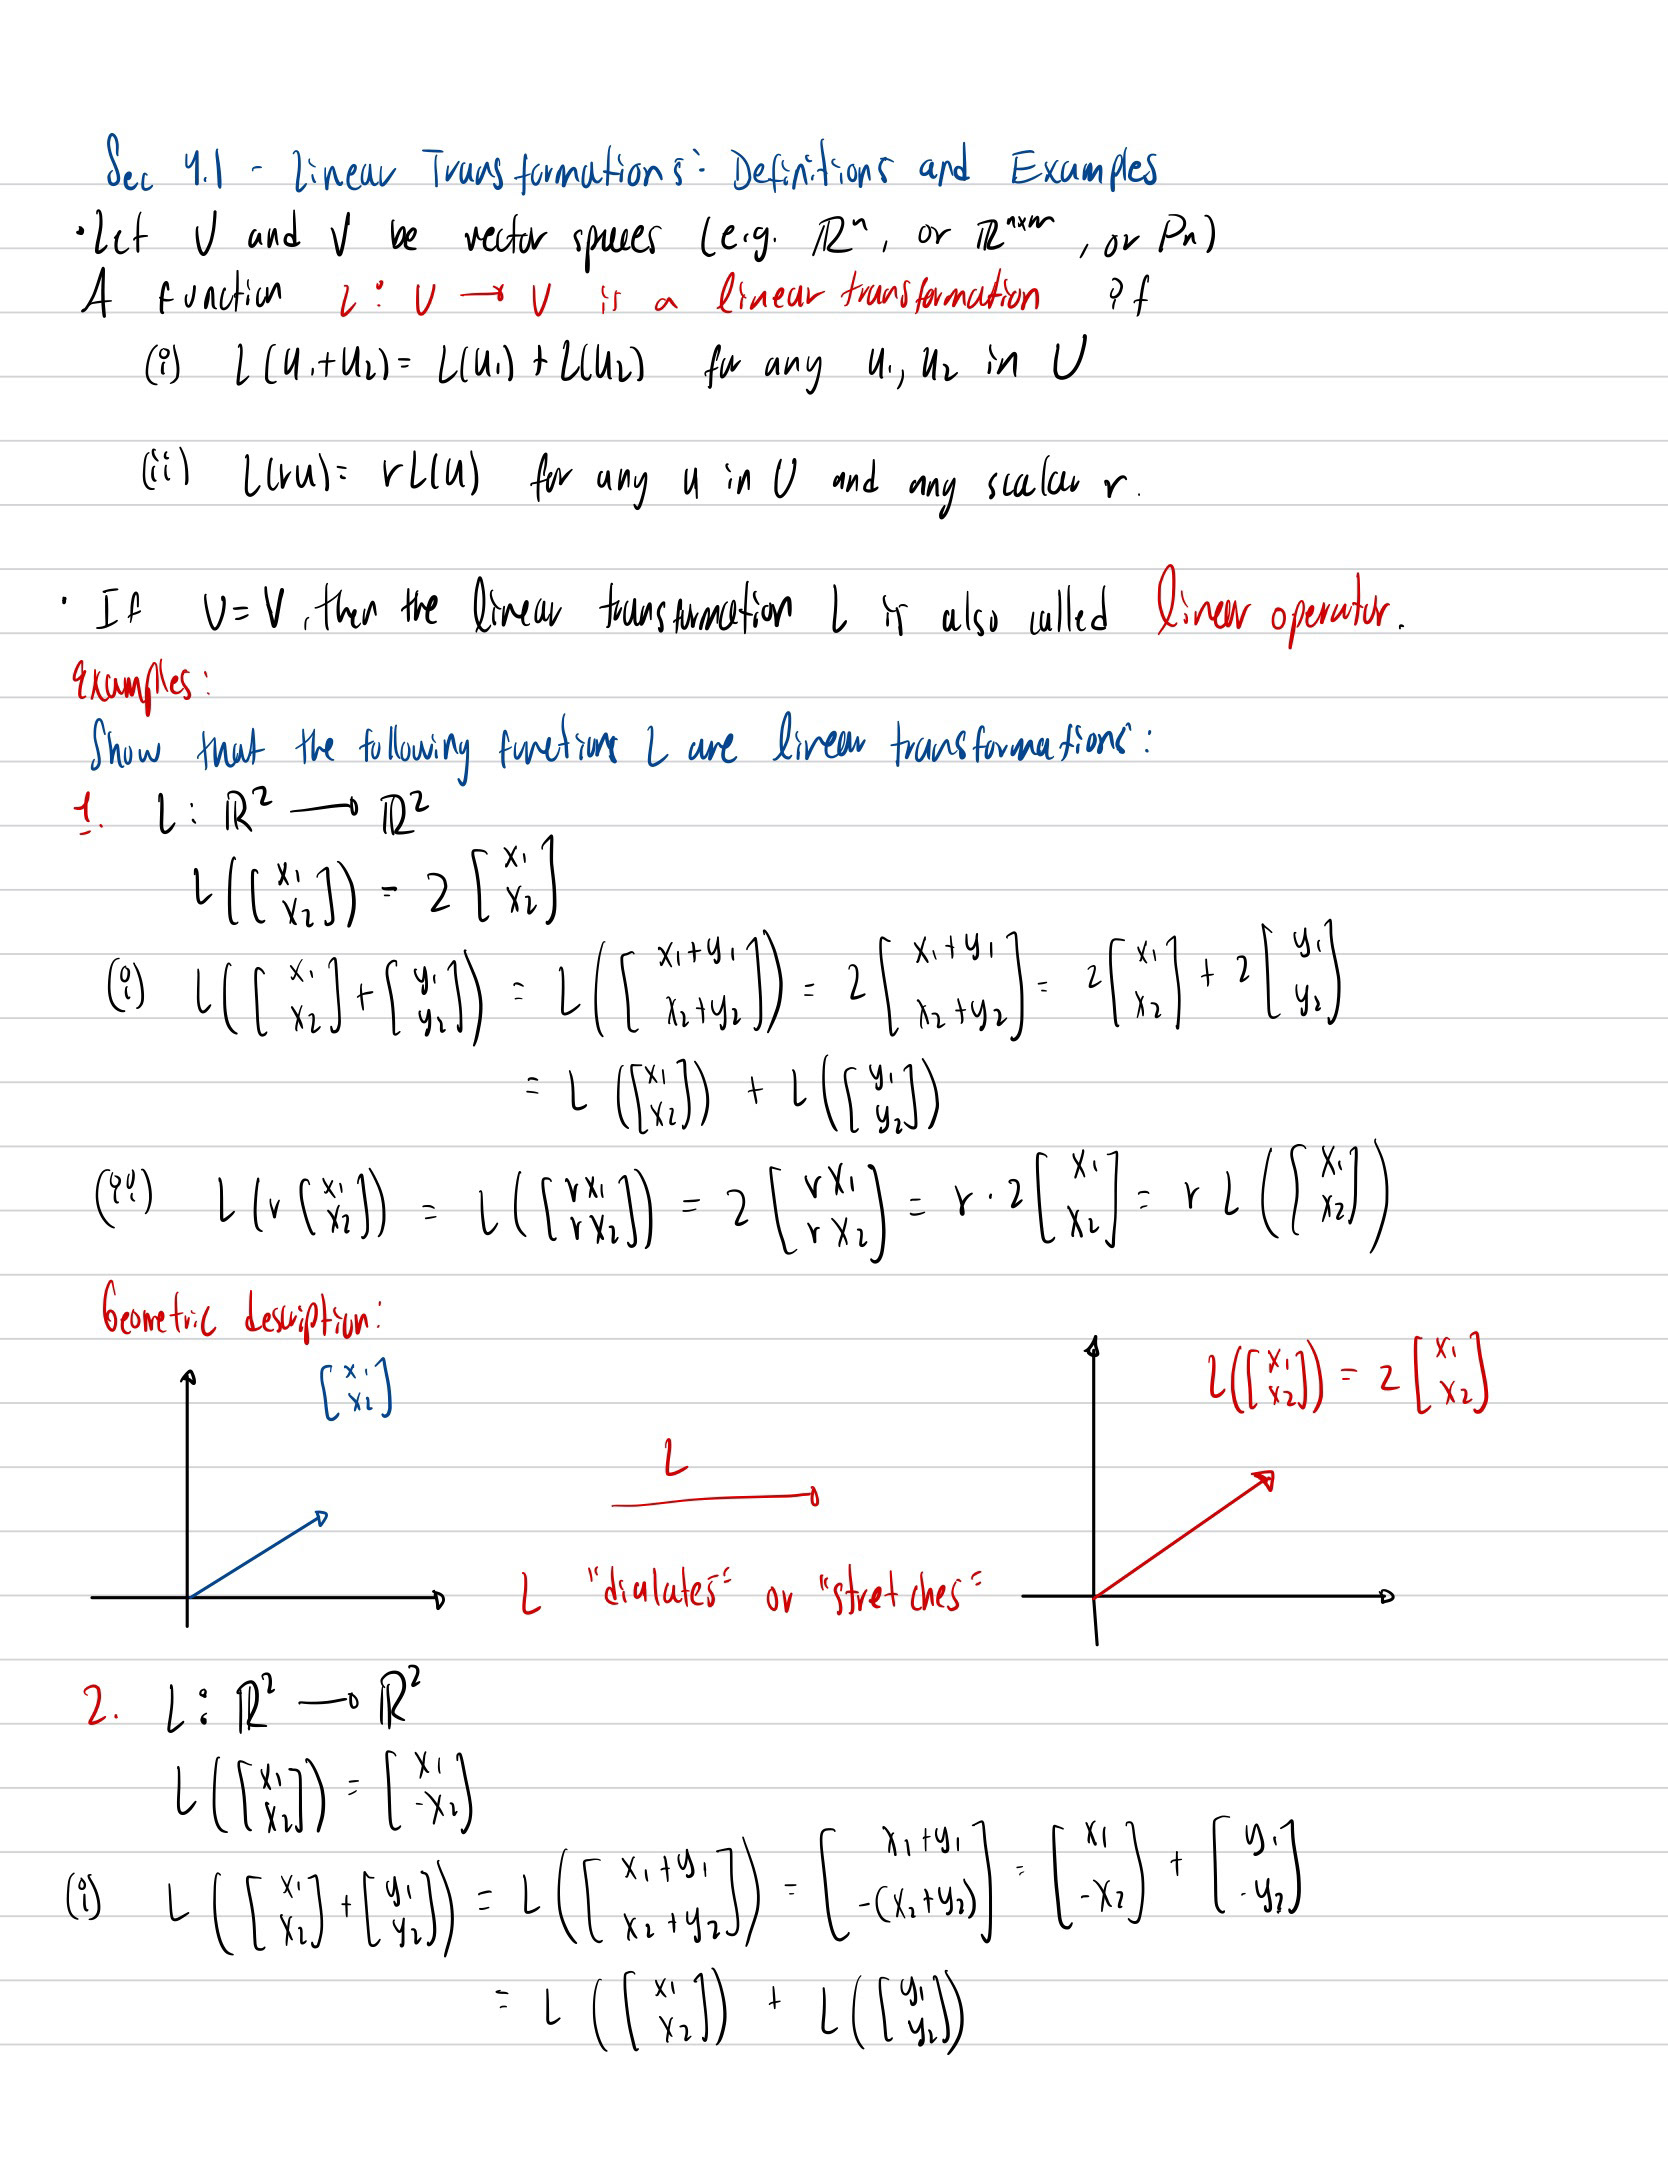 Sec 4.1 - Linear Transformations: Definitions and Examples
• Let U and V be vector spaces (e.g. ℝⁿ, or ℝⁿˣᵐ, or Pn)
A function L: U → V is a linear transformation if
(i) L(u₁+u₂) = L(u₁) + L(u₂) for any u₁, u₂ in U
(ii) L(ru) = rL(u) for any u in U and any scalar r.
• If U=V, then the linear transformation L is also called linear operator.
Examples:
Show that the following functions L are linear transformations:
1. L: ℝ² → ℝ²
L([x₁ x₂]) = 2[x₁ x₂]
(i) L([x₁ x₂]+[y₁ y₂]) = L([x₁+y₁ x₂+y₂]) = 2[x₁+y₁ x₂+y₂] = 2[x₁ x₂] + 2[y₁ y₂]
= L([x₁ x₂]) + L([y₁ y₂])
(ii) L(r[x₁ x₂]) = L([rx₁ rx₂]) = 2[rx₁ rx₂] = r·2[x₁ x₂] = rL([x₁ x₂])
Geometric description:
[x₁ x₂]
L([x₁ x₂]) = 2[x₁ x₂]
L
L "dialates" or "stretches"
2. L: ℝ² → ℝ²
L([x₁ x₂]) = [x₁ -x₂]
(i) L([x₁ x₂]+[y₁ y₂]) = L([x₁+y₁ x₂+y₂]) = [x₁+y₁ -(x₂+y₂)] = [x₁ -x₂] + [y₁ -y₂]
= L([x₁ x₂]) + L([y₁ y₂])